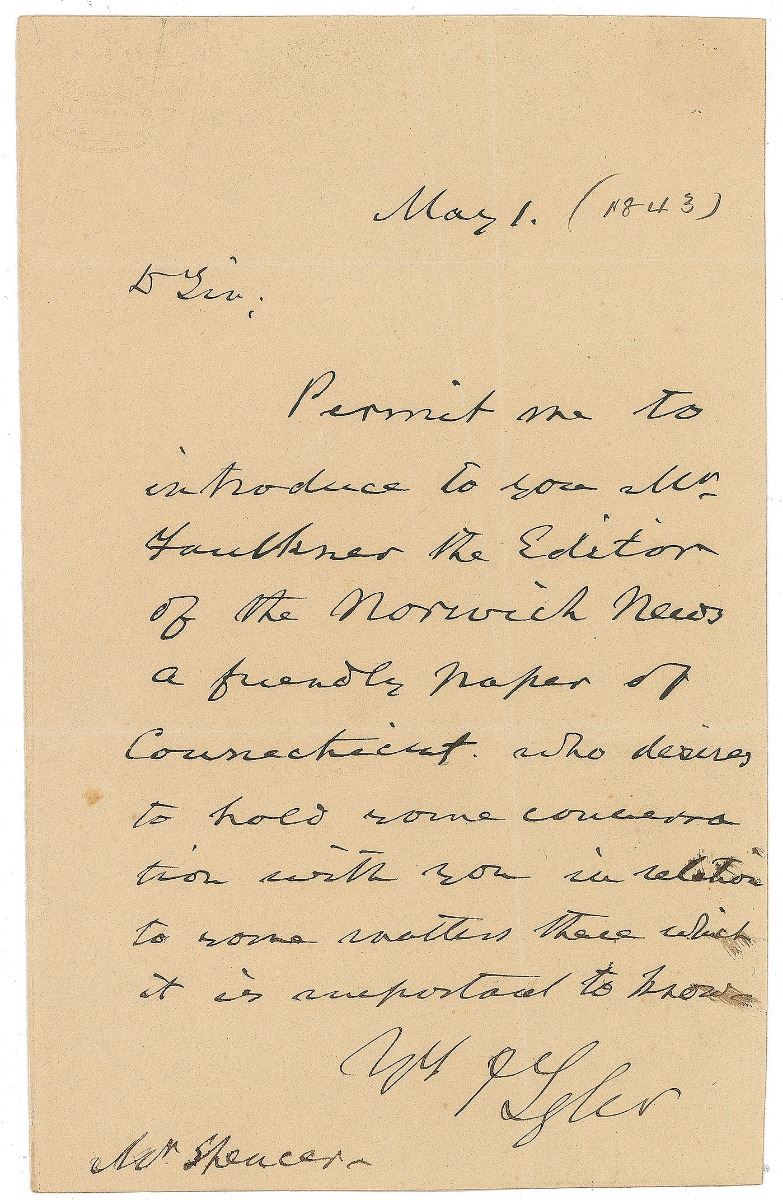 May 1. (1843)
D Sir;
Permit me to
introduce to you Mr
Faulkner the Editor
of the Norwich News
a friendly paper of
Connecticut. who desires
to hold some conversa
tion with you in relation
to some matters there which
it is important to know
Yrs J Tyler
Mr Spencer